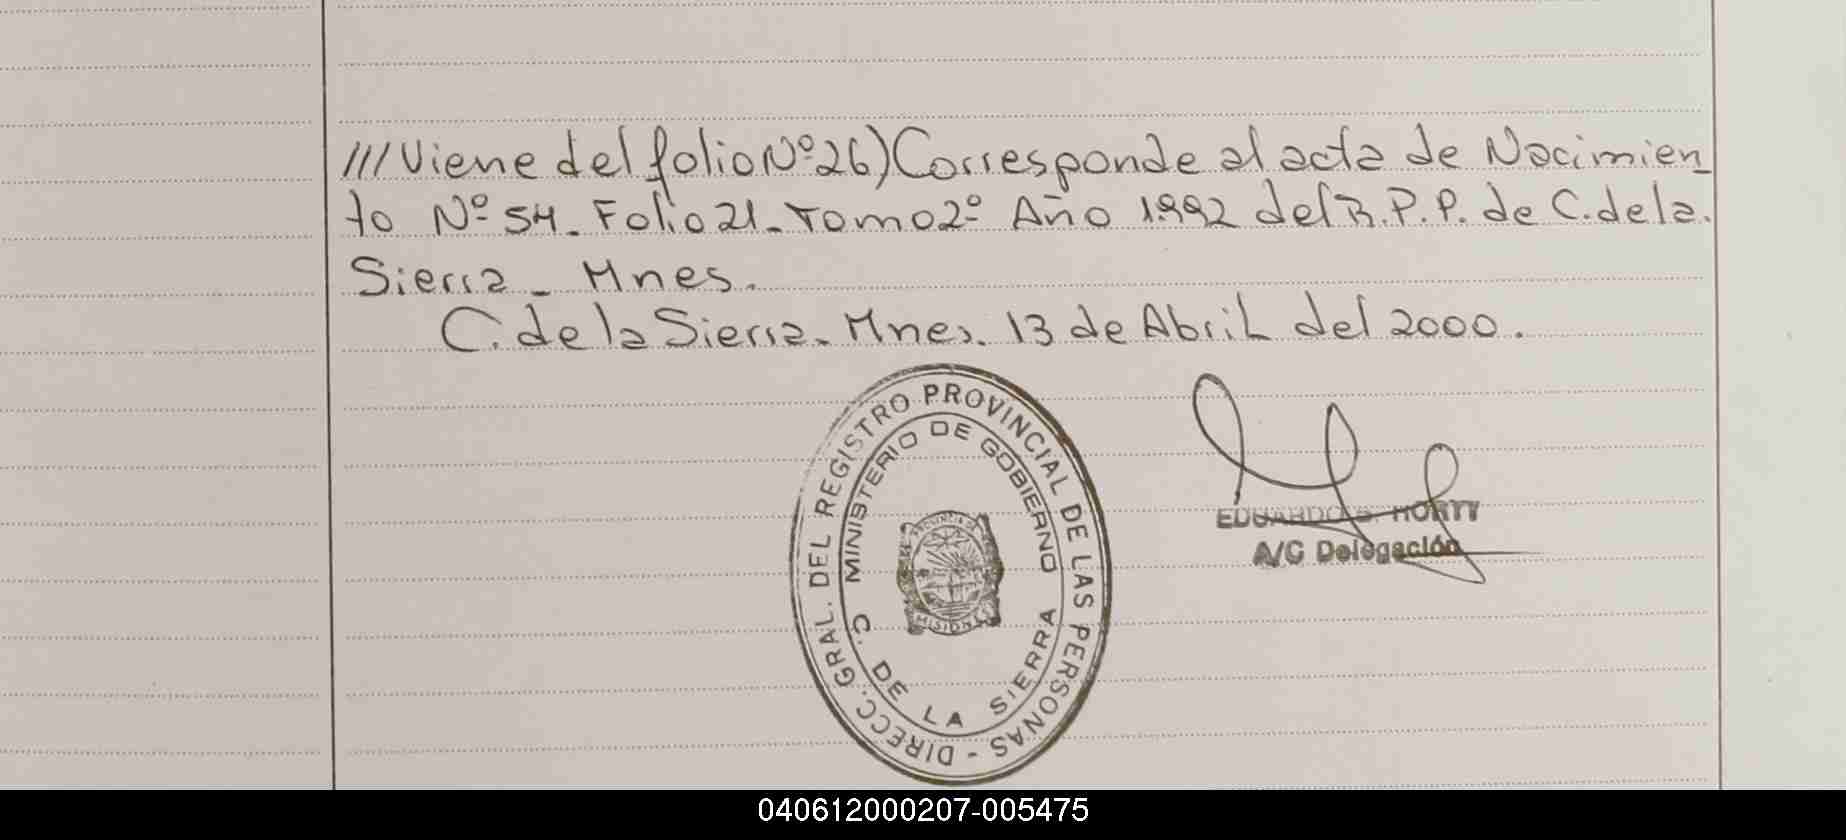 ///Viene del folio Nº 26) Corresponde al acta de Nacimien_
to Nº 54_ Folio 21_ Tomo 2º Año 1992 del R.P.P. de C. de la.
Sierra_ Mnes.
C. de la Sierra_ Mnes. 13 de Abril del 2000.
DIRECC. GRAL. DEL REGISTRO PROVINCIAL DE LAS PERSONAS -
MINISTERIO DE GOBIERNO
PROVINCIA DE
MISIONES
C. DE LA SIERRA
EDUARDO HORTY
A/C Delegación
040612000207-005475